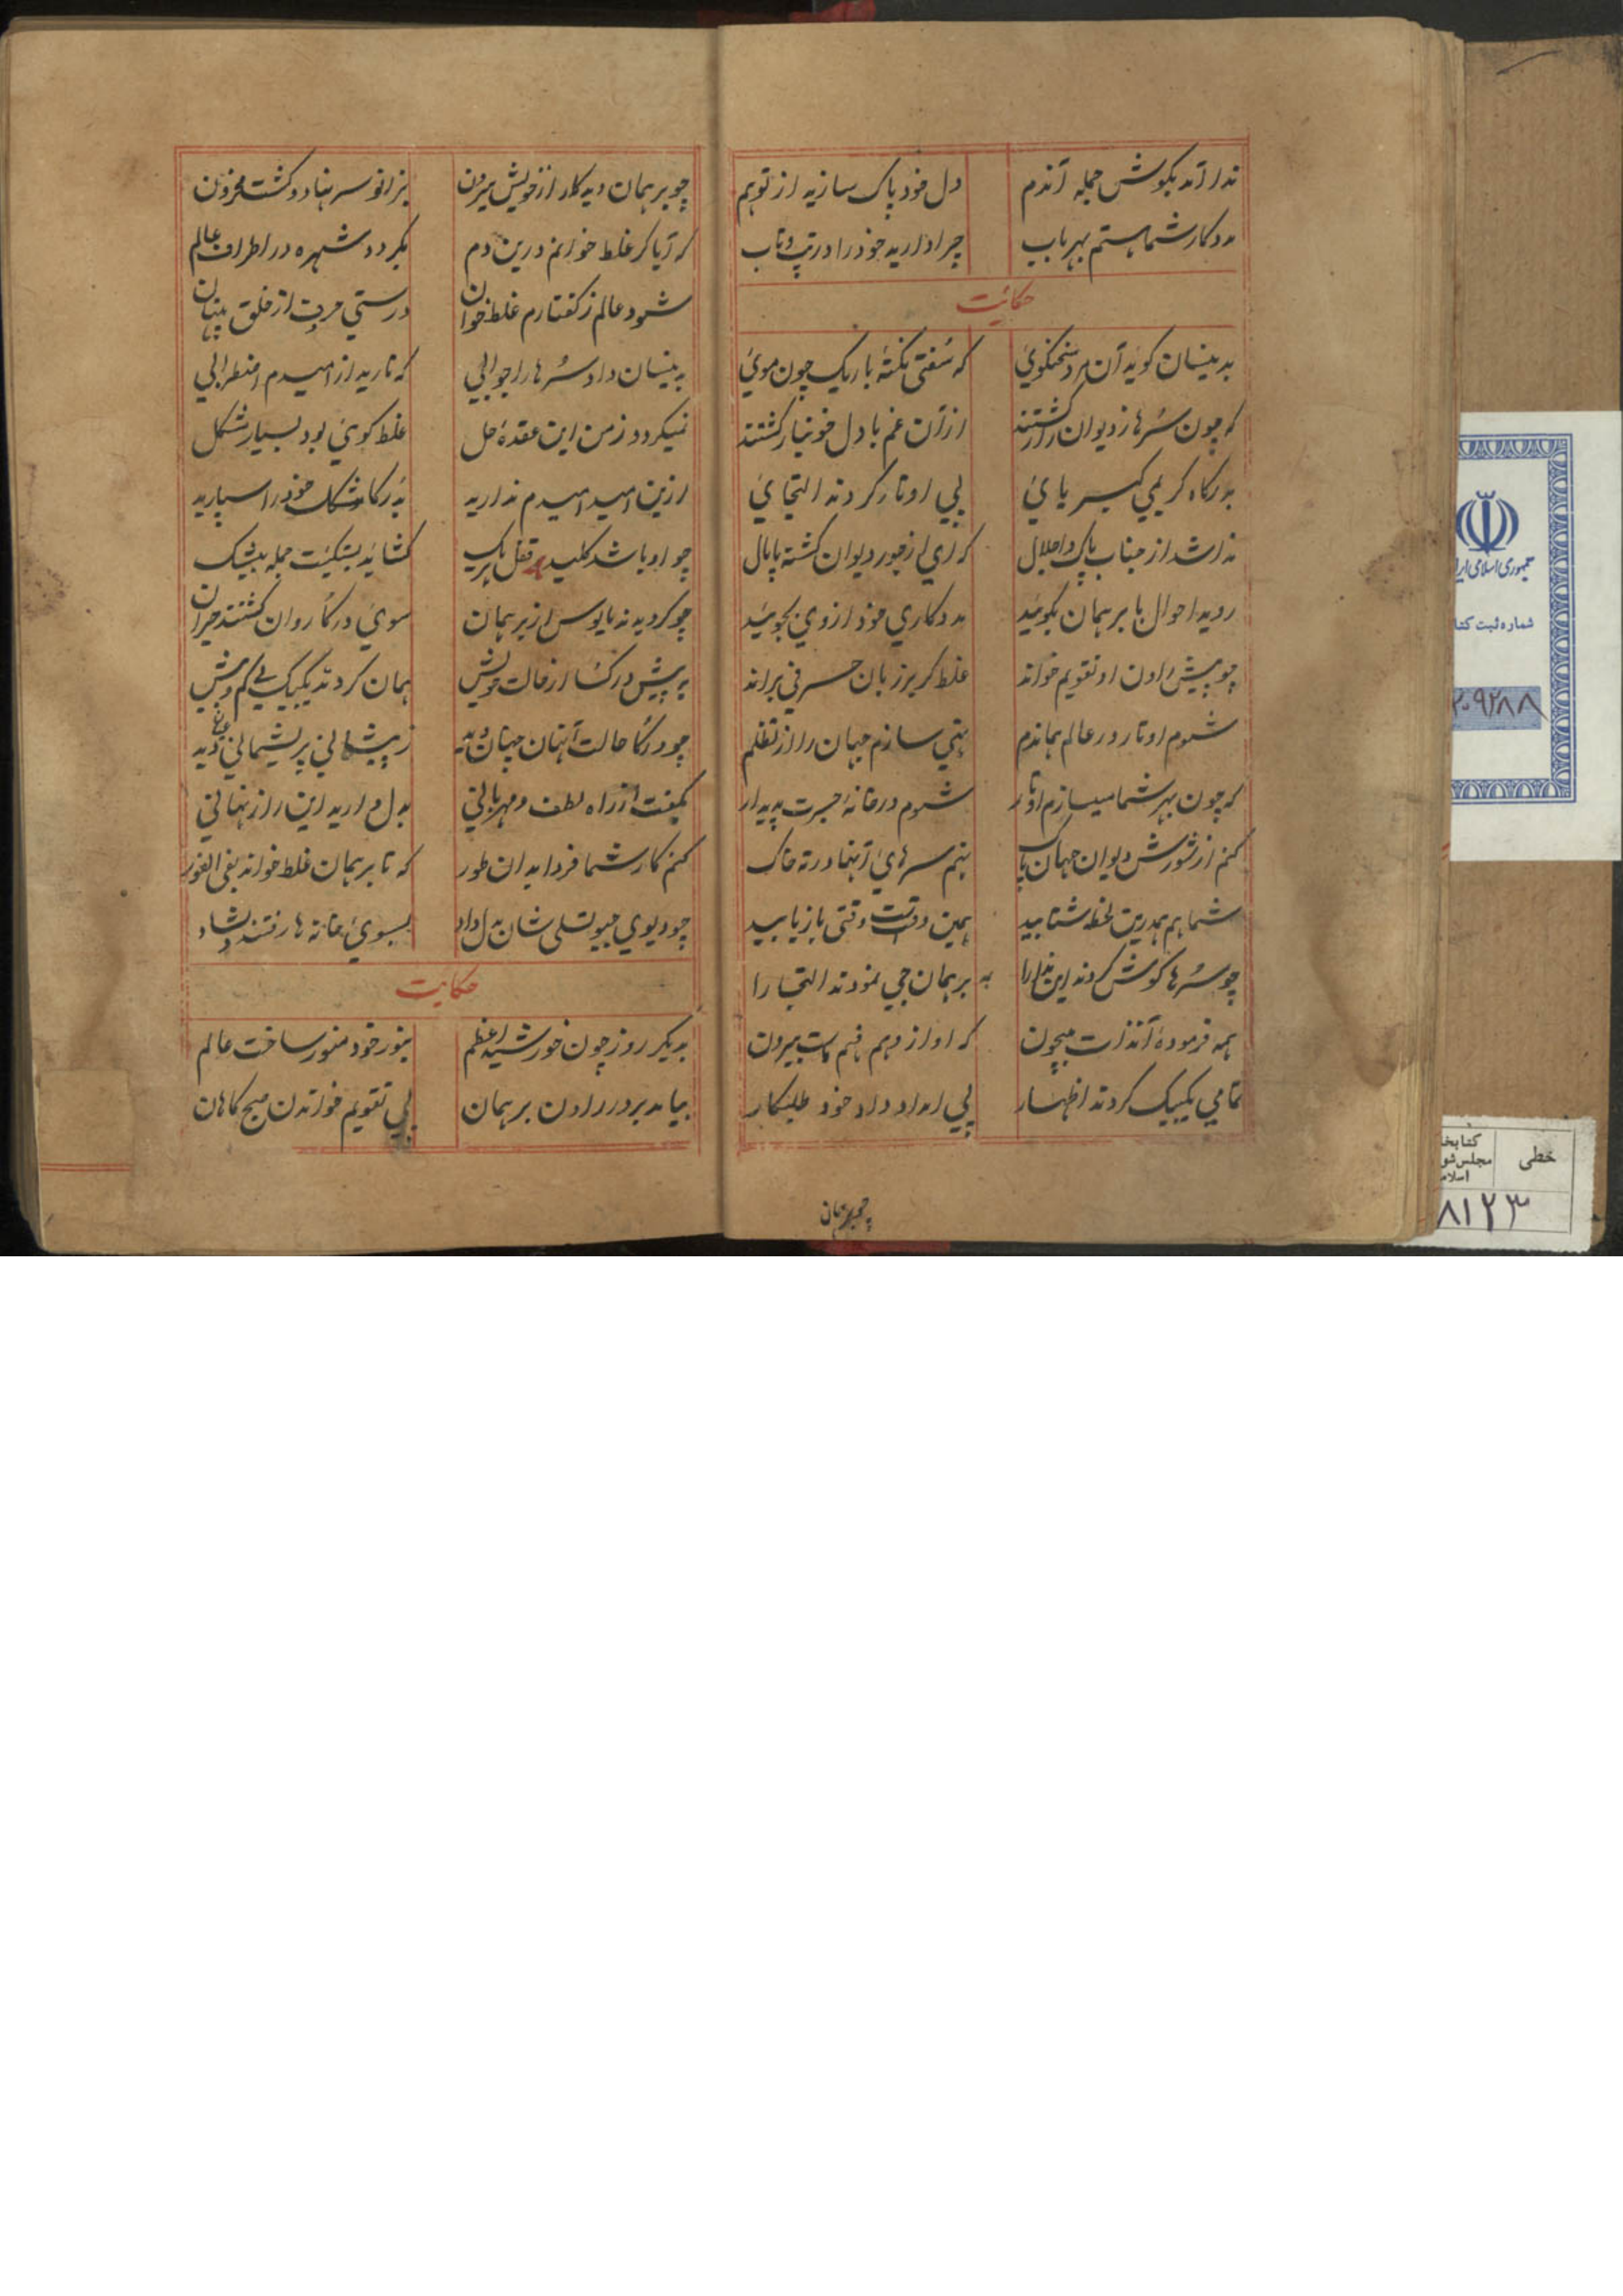 ندا آمد بگوش جمله آندم دل خود پاک سازید از توهم
مددکار شما هستم بهر باب چرا دارید خود را در تب و تاب
حکایت
بدینسان گوید آن مرد سخنگوئ که سفتی نکتهٔ باریک چون موئ
که چون سرها ز دیوان زار گشتند ازان غم با دل خونبار گشتند
بدرگاه کریمی کبریایئ پی اوتار کردند التجایئ
ندا شد از جناب پاک اجلال که ای از جور دیوان گشته پامال
روید احوال با برهمان بگوئید مددکاری خود از وی بجوئید
چو پیش راون او تقویم خواند غلط گر بر زبان حرفی براند
شوم اوتار در عالم بماندم تهی سازم جهان را از تظلم
که چون بهر شما میسازم اوتار شوم در خانهٔ جسرت پدیدار
کنم از شورش دیوان جهان پاک نهم سرهائ آنها در ته خاک
شما هم همدرین لحظه شتابید همین وقتست وقتی باز یابید
چو سرها گوش کردند این ندا را به برهمان جی نمودند التجا را
همه فرمودهٔ آنذات بیچون که او از وهم فهم ماست بیرون
تمامی یکبیک کردند اظهار پی امداد داد خود طلبکار
چو برهمان دید کار از خویش بیرون بزانو سر نهاد و گشت محزون
که آیا گر غلط خوانم درین دم بگردد شهره در اطراف عالم
شود عالم ز گفتارم غلط خوان درستی حرف از خلق پنهان
بدینسان داد سرها را جوابی که نارید از امیدم اضطرابی
نمیگردد ز من این عقدهٔ حل غلط گوئ بود بسیار مشکل
ازین امید امیدم ندارید بدرگا مشکل خود را سپارید
چو او باشد کلید قفل هر یک گشاید بستگیت جمله بیشک
چو گردیدند مایوس از برهمان سوئ درگا روان گشتند حیران
به پیش درگا از حالت خویش همان کردند یکبیک بی کم و بیش
چو درگا حالت آنهان چنان دید ز پیشانی پریشانی عیان دید
بگفت از راه لطف و مهربانی بدل دارید این راز نهانی
کنم کار شما فردا بدان طور که تا برهمان غلط خواند بفی الفور
چو دیوی جیو تسلی شان بدل داد بسوئ خانه ها رفتند دلشاد
حکایت
بدیگر روز چون خورشید اعظم بنور خود منور ساخت عالم
بیامد بر در راون برهمان پی تقویم خواندن صبح گاهان
جمهوری اسلامی ایر
شماره ثبت کتا
۲۰۹۲۸۸
خطی
کتابخا
مجلس شو
اسلام
۸۱۲۳